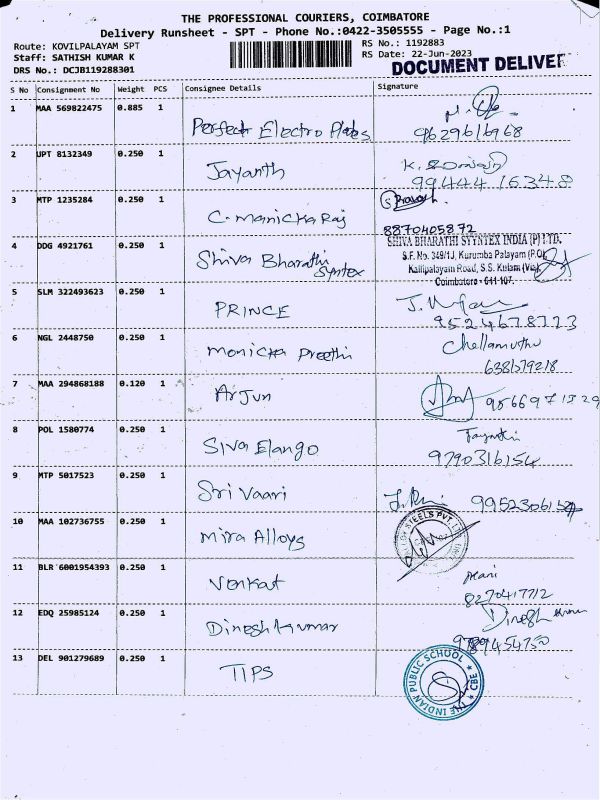 THE PROFESSIONAL COURIERS, COIMBATORE
Delivery Runsheet - SPT - Phone No.:0422-3505555 - Page No.:1
Route: KOVILPALAYAM SPT
Staff: SATHISH KUMAR K
DRS No.: DCJB119288301
RS No.: 1192883
RS Date: 22-Jun-2023
DOCUMENT DELIVER
S No Consignment No Weight PCS Consignee Details Signature
1 MAA 569822475 0.885 1 Perfect Electro Plates
9629616968
2 UPT 8132349 0.250 1 Jayanth
99444 16348
3 MTP 1235284 0.250 1 C. Manicka Raj
8870405872
4 DDG 4921761 0.250 1 Shiva Bharathi Syntex
SHIVA BHARATHI SYYNTEX INDIA (P) LTD.
S.F. No. 349/1J, Kurumba Palayam (P.O),
Kallipalayam Road, S.S. Kulam (Via),
Coimbatore - 641 107.
5 SLM 322493623 0.250 1 PRINCE
9524678723
6 NGL 2448750 0.250 1 Monicka Preethi
Chellamuthu
6381579218
7 MAA 294868188 0.120 1 Arjun
8 POL 1580774 0.250 1 Siva Elango
9790316154
9 MTP 5017523 0.250 1 Sri Vaari
10 MAA 102736755 0.250 1 Mira Alloys
STEELS PVT. LTD
11 BLR 6001954393 0.250 1 Venkat
Mani
8270417712
12 EDQ 25985124 0.250 1 Dinesh Kumar
Dinesh
13 DEL 901279689 0.250 1 TIPS
THE INDIAN PUBLIC SCHOOL CBE